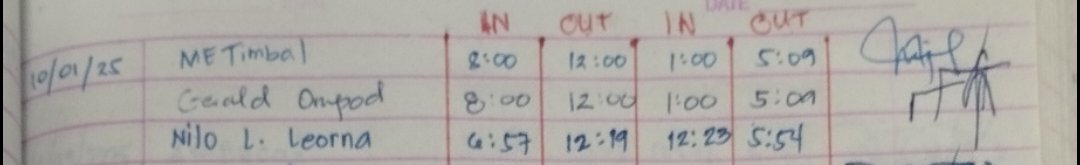 DATE
IN OUT IN OUT
10/01/25 METimbal 8:00 12:00 1:00 5:09
Gerald Ompod 8:00 12:00 1:00 5:09
Nilo L. Leorna 6:57 12:19 12:23 5:54